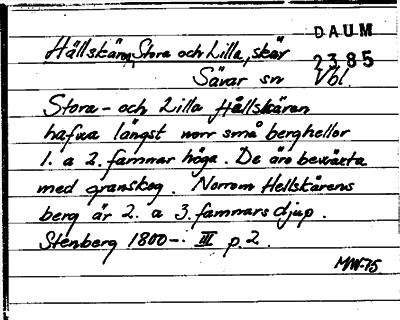 DAUM
Hällskären, Stora och Lilla, skär 2385
Sävar sn Vbl.
Stora- och Lilla Hällskären
hafva längst norr små berghellor
1. a 2. famnar höga. De äro beväxta
med granskog. Norrom Hellskärens
berg är 2. a 3. famnars djup.
Stenberg 1800-. III p. 2.
MW-75